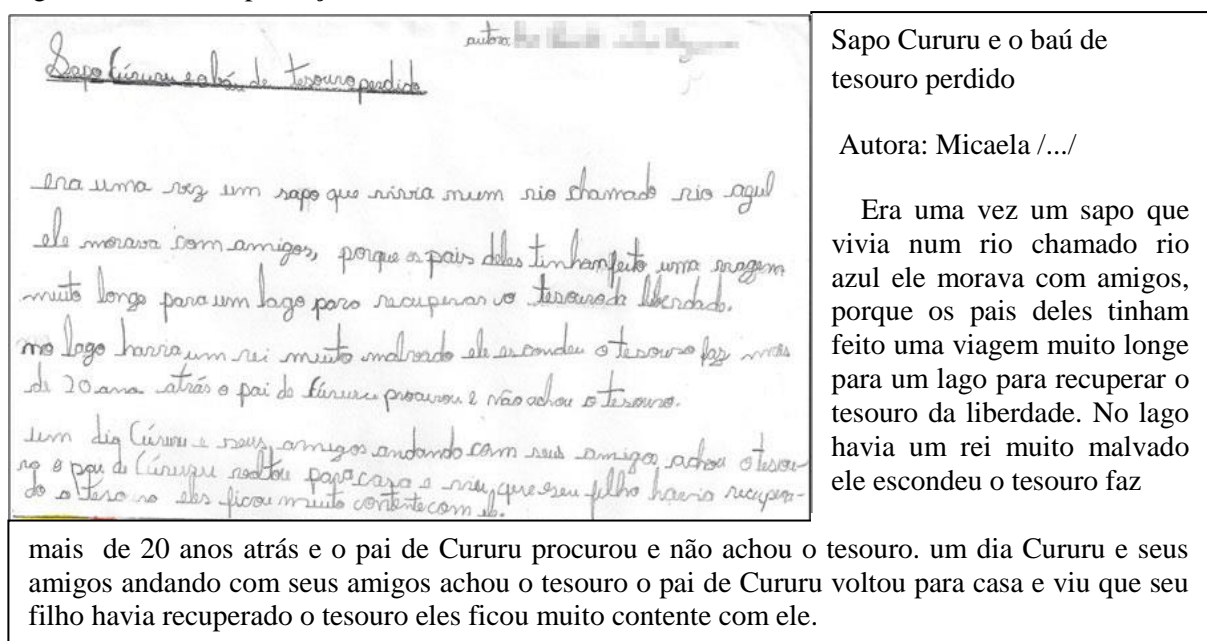 autora
Sapo Cúruru e o báu de tesouro perdido
era uma vez um sapo que vivia num rio chamado rio agul
ele morava com amigos, porque os pais deles tinhamfeito uma viagem
muito longe para um lago para recuperar o tesouro da liberdade.
no lago havia um rei muito malvado ele escondeu o tesouro faz mais
de 20 ano atrás o pai de Cúruru procurou e não achou o tesouro.
um dia Cúruru e seus amigos andando com seus amigos achou o tesou-
ro o pai de Cúruru voltou para casa e viu que seu filho havia recupera-
do o tesouro eles ficou muito contente com ele.
Sapo Cururu e o baú de
tesouro perdido
Autora: Micaela /.../
Era uma vez um sapo que
vivia num rio chamado rio
azul ele morava com amigos,
porque os pais deles tinham
feito uma viagem muito longe
para um lago para recuperar o
tesouro da liberdade. No lago
havia um rei muito malvado
ele escondeu o tesouro faz
mais de 20 anos atrás e o pai de Cururu procurou e não achou o tesouro. um dia Cururu e seus
amigos andando com seus amigos achou o tesouro o pai de Cururu voltou para casa e viu que seu
filho havia recuperado o tesouro eles ficou muito contente com ele.